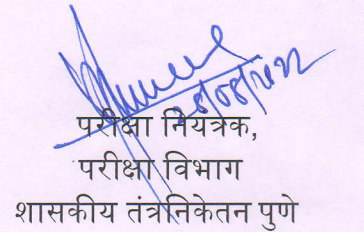 परीक्षा नियंत्रक,
परीक्षा विभाग
शासकीय तंत्रनिकेतन पुणे